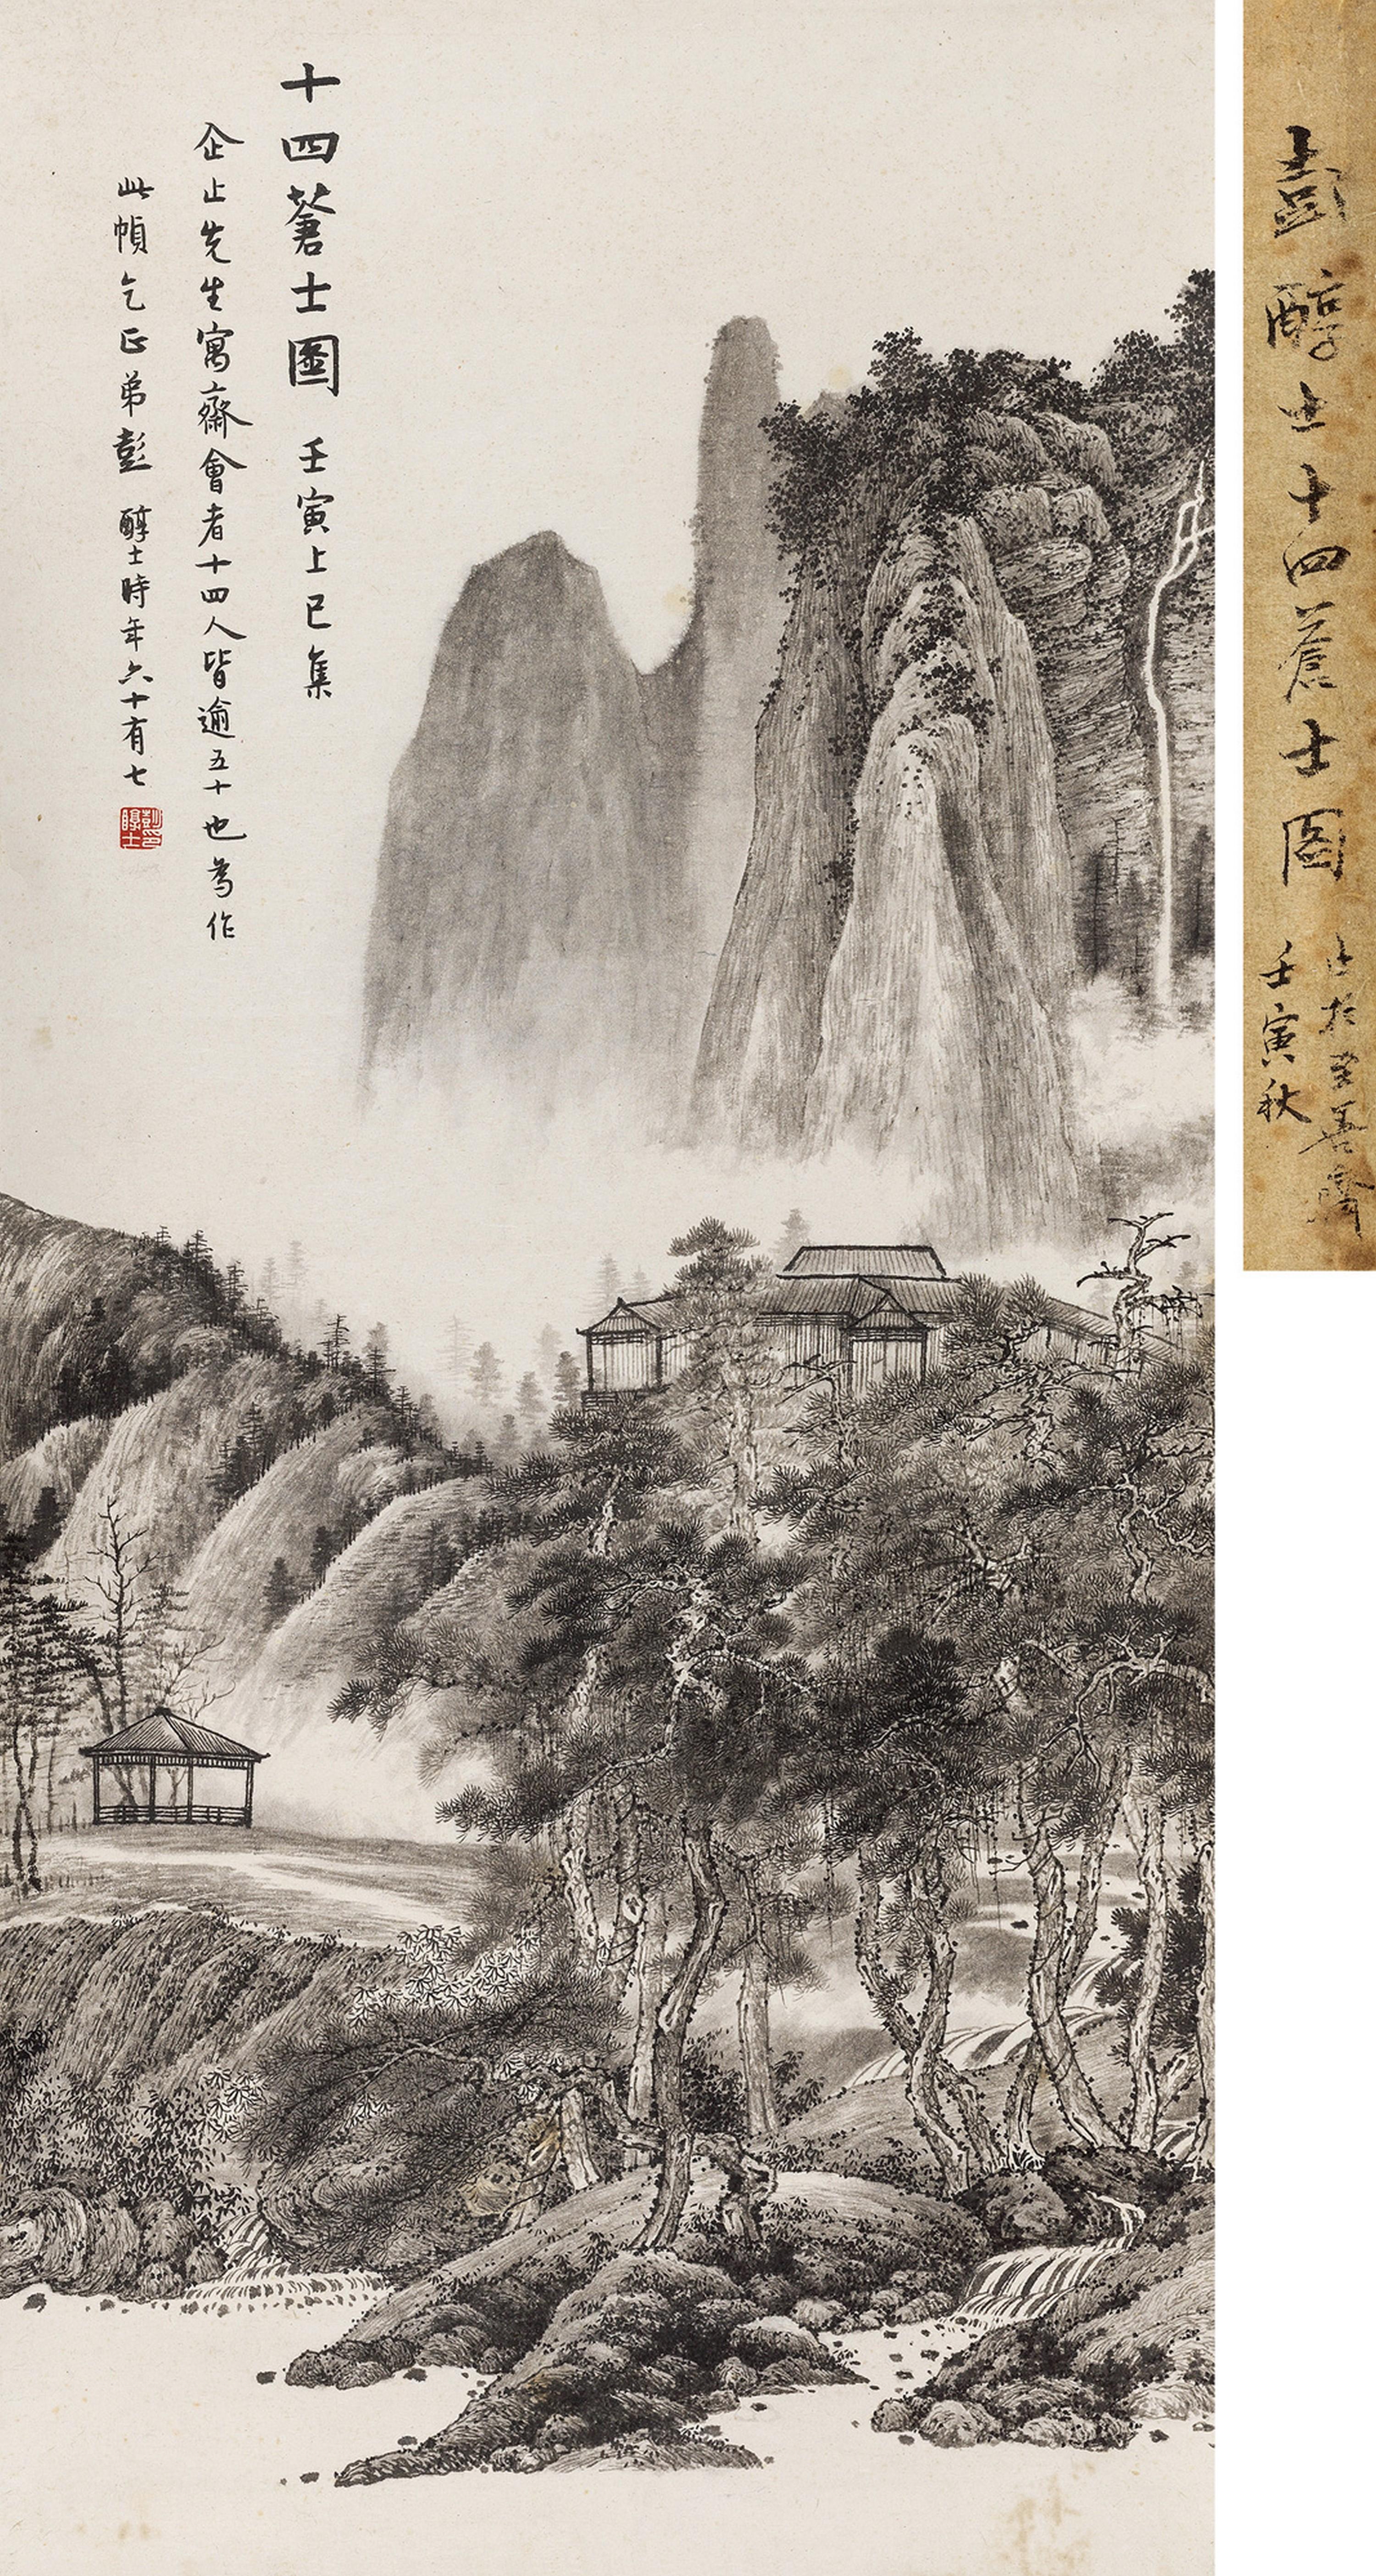 十四蒼士圖 壬寅上巳集
企止先生寓齋會者十四人皆逾五十也為作
此幀乞正弟彭 醇士時年六十有七
彭醇士印
彭醇士十四蒼士图
壬寅秋